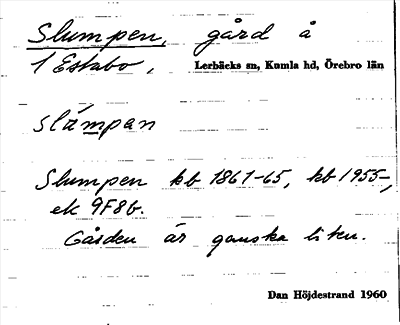 Slumpen, gård å
1 Estabo, Lerbäcks sn, Kumla hd, Örebro län
slúmpen
Slumpen kb 1861-65, kb 1955-,
ek 9F8b.
Gården är ganska liten.
Dan Höjdestrand 1960